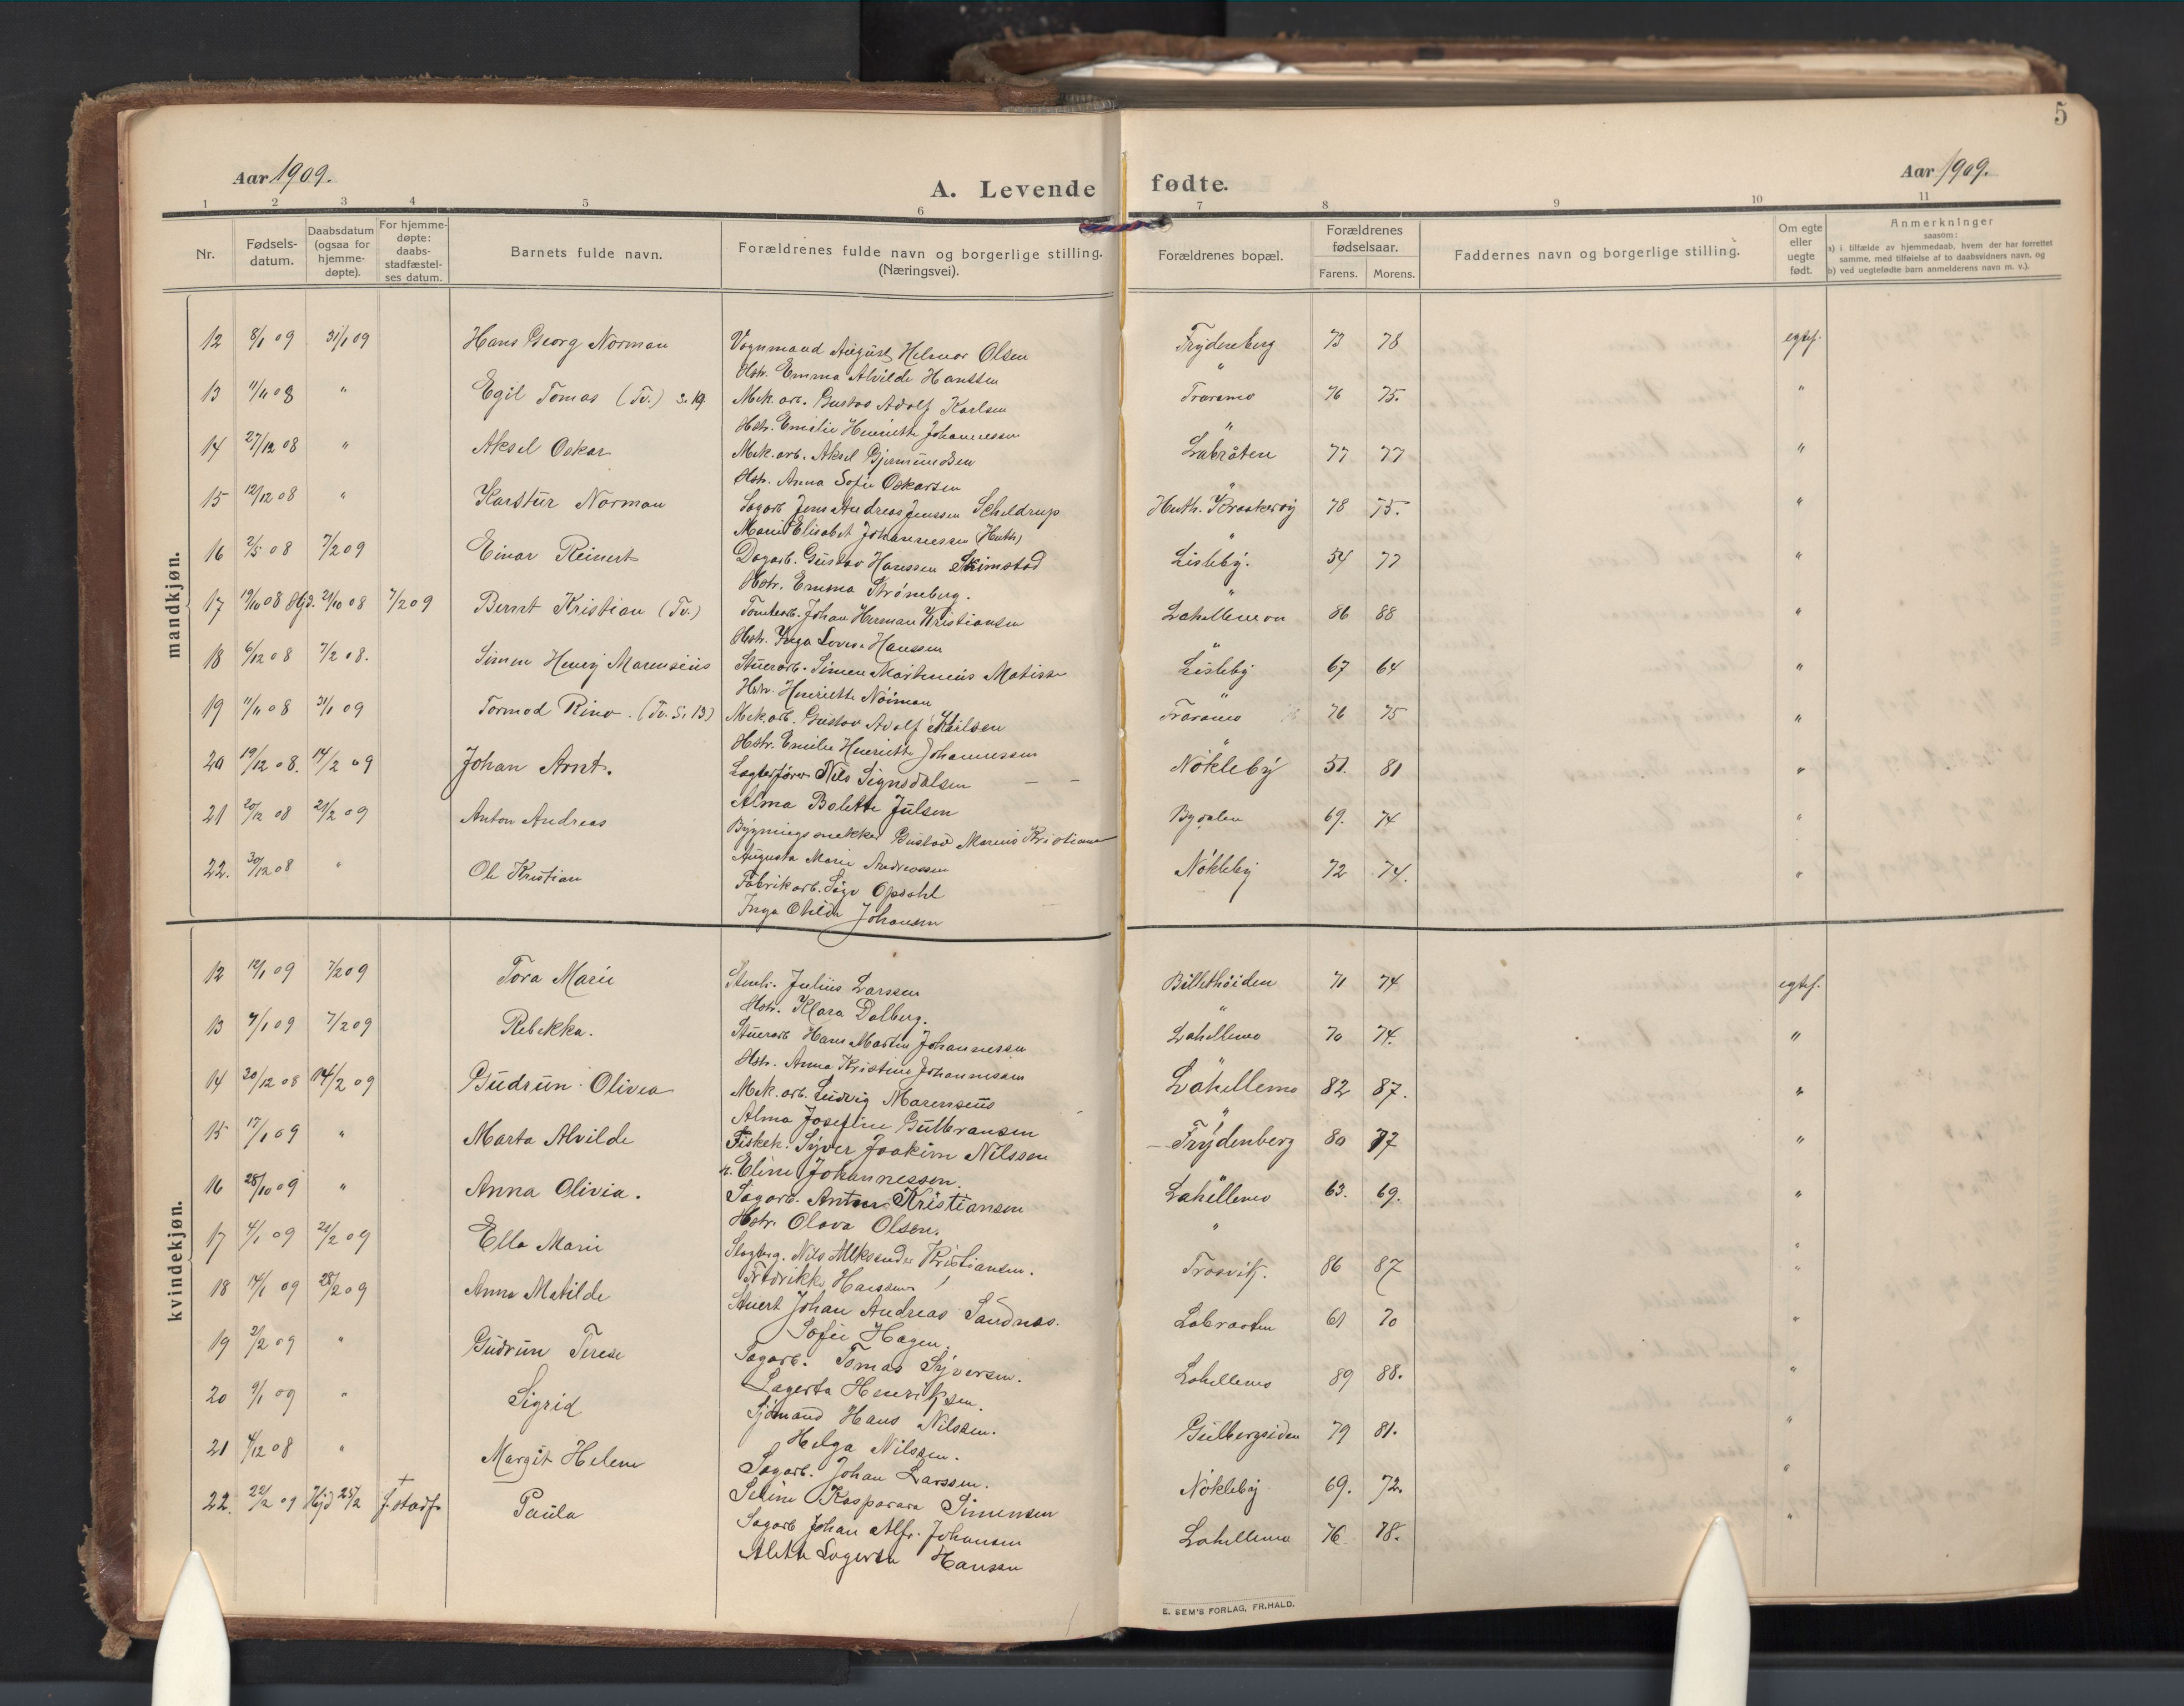 5
Aar 1909.
A. Levende fødte.
Aar 1909.
1 2 3 4 5 6 7 8 9 10 11
Nr.
Fødsels-
datum.
Daabsdatum
(ogsaa for
hjemme-
døpte).
For hjemme-
døpte:
daabs-
stadfæstel-
ses datum.
Barnets fulde navn.
Forældrenes fulde navn og borgerlige stilling.
(Næringsvei).
Forældrenes bopæl.
Forældrenes
fødselsaar.
Farens. Morens.
Faddernes navn og borgerlige stilling.
Om egte
eller
uegte
født.
Anmerkninger
saasom:
a) i tilfælde av hjemmedaab, hvem der har forrettet
samme, med tilføielse af to daabsvidners navn, og
b) ved uegtefødte barn anmelderens navn m. v.).
mandkjøn.
12 8/1 09 31/1 09 Hans Georg Norman Vognmand August Helmer Olsen Frydenberg 73 78 egtef.
Hstr. Emma Alvilde Hanssen "
13 11/11 08 " Egil Tomas (Tv.) s. 19. Mek. arb. Gustav Adolf Karlsen Traramo 76 75. "
Hstr. Emilie Henriette Johannessen "
14 27/12 08 " Aksel Oskar Mek. arb. Aksel Gjermundsen Labråten 77 77 "
Hstr. Anna Sofie Oskarsen "
15 12/12 08 " Karstur Norman Sagarb. Jens Andreas Jenssen Scheldrup Huth. Kraakerøy 78 75. "
Marie Elisabet Johannessen (Huth) "
16 2/5 08 7/2 09 Einar Reinert Dagarb. Gustav Hanssen Skimstad Lisleby. 54 77 "
Hstr. Emma Strøneberg. "
17 19/10 08 Hjd. 29/10 08 7/2 09 Bernt Kristian (Tv.) Tomtearb. Johan Herman Kristiansen Lahellemoen 86 88 "
Hstr. Inga Lovise Hanssen "
18 6/12 08 7/2 08. Simen Henry Marensius Stuerarb. Simen Martineius Matisen Lisleby 67 64 "
Hstr. Henriette Nøiman "
19 11/11 08 31/1 09 Tormod Rino. (Tv. s. 13) Mek. arb. Gustav Adolf Karlsen Traramo 76 75 "
Hstr. Emilie Henriette Johannessen "
20 19/12 08. 14/2 09 Johan Arnt. Lægterfører Nils Signsdalsen Nökleby 51. 81 "
Alma Bolette Julsen
21 20/12 08 21/2 09 Anton Andreas Bygningssnekker Gustav Marius Kristiansen Bydalen 69. 74 "
Augusta Marie Andreassen
22. 30/12 08 " Ole Kristian Fabrikarb. Sigv Opdahl Nökleby 72 74. "
Inga Otilde Johansen
kvindekjøn.
12 12/1 09 7/2 09 Tora Marie Stenh. Julius Larssen Billethöiden 71 74 egtef.
Hstr. Klara Dalberg. "
13 7/1 09 7/2 09 Rebekka. Stuerarb Hans Martin Johannessen Lahellemo 70 74. "
Hstr. Anna Kristine Johannessen "
14 30/12 08 14/2 09 Gudrun Olivea Mek. arb. Ludvig Marensius Lahellemo 82 87. "
Alma Josefine Gulbransen "
15 17/1 09 " Marta Alvilde Fiskek. Syver Joakim Nilssen Frydenberg 80 77 "
h. Eline Johannessen.
16 28/10 09 " Anna Olivia. Sagarb. Anton Kristiansen Lahellemo 63. 69. "
Hstr. Olava Olsen. "
17 4/1 09 21/2 09 Ella Marie Nils Aleksander Kristiansen. Trosvik. 86 87 "
Fredrikke Hanssen
18 14/1 09 28/2 09 Anna Matilde Stuert Johan Andreas Sandnas. Labraaten 61 70 "
Sofie Hagen.
19 2/2 09 " Gudrun Terese Sagarb. Tomas Syversen. Lahellemo 89 88. "
Lagerta Henriksen.
20 9/1 09 " Sigrid Sjömand Hans Nilsen. Gulbergsiden 79 81. "
Helga Nilsen.
21 4/12 08 " Margit Helene Sagarb. Johan Larssen. Nökleby 69. 72. "
Seline Kasparara Simensen
22. 22/2 09 Hjd 25/2 † f. stadf. Paula Sagarb Johan Alfr. Johansen Lahellemo 76 78. "
Alette Lagerta Hansen
E. SEM'S FORLAG, FR.HALD.